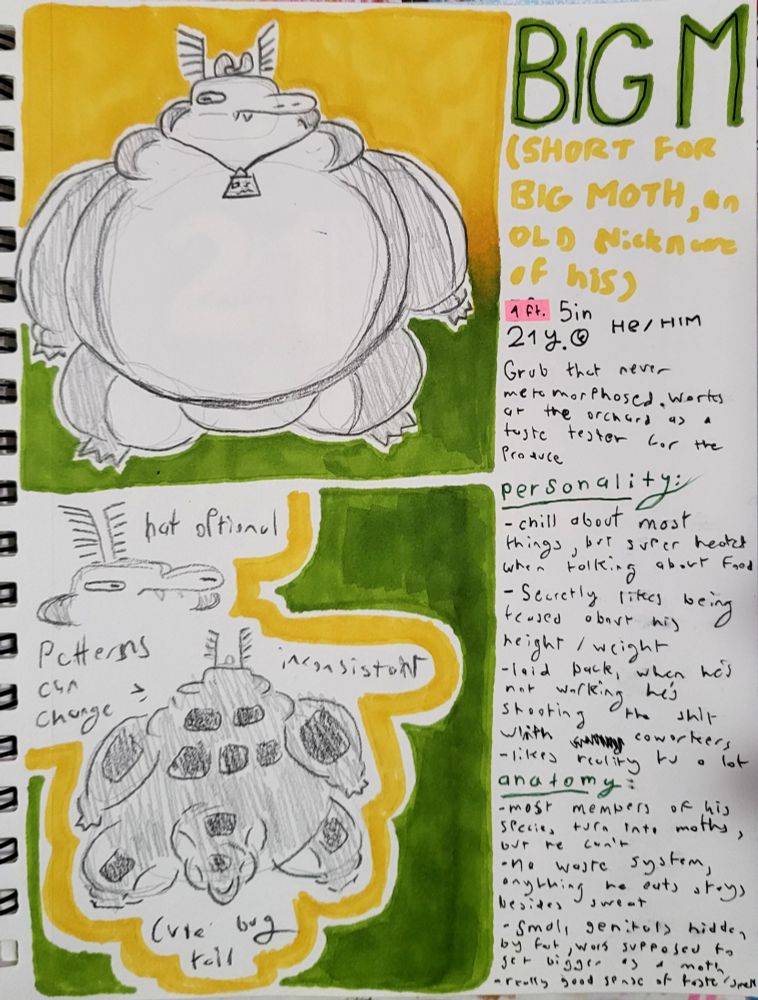 BIG M
(SHORT FOR
BIG MOTH, an
OLD Nickname
of his)
1 ft. 5in
21 y.o HE/HIM
Grub that never
metamorphosed. Works
at the orchard as a
taste tester for the
Produce
personality:
- chill about most
things, but super heated
when talking about food
- Secretly likes being
teased about his
height/weight
- laid back, when he's
not working he's
shooting the shit
with coworkers
- likes reality tv a lot
anatomy:
- most members of his
species turn into moths,
but he can't
- No waste system,
anything he eats stays
besides sweat
- Small genitals hidden
by fat, was supposed to
get bigger as a moth
- really good sense of taste/smell
hat optional
Patterns
can
change
inconsistent
Cute bug
tail